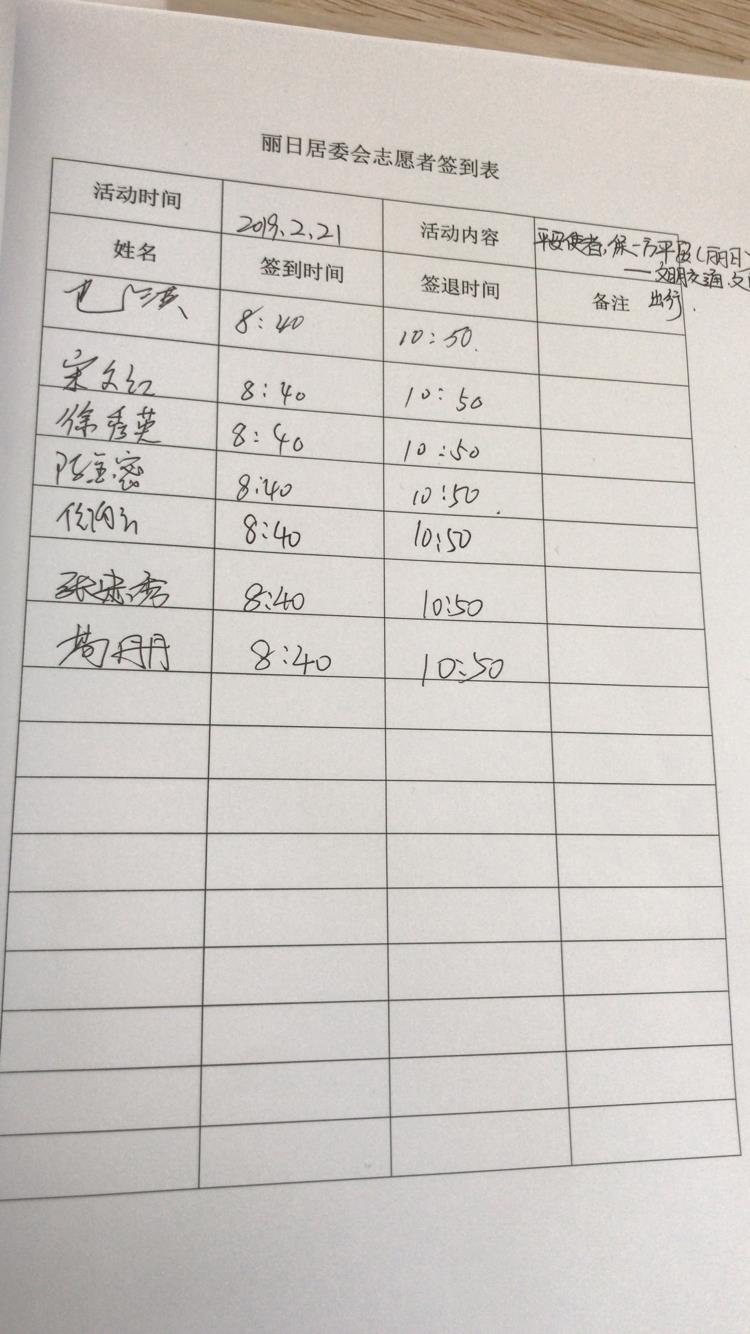 丽日居委会志愿者签到表
活动时间 2019.2.21 活动内容 平安使者,保一方平安(丽日)
——文明交通、文
出行.
姓名 签到时间 签退时间 备注
8:40 10:50.
宋文红 8:40 10:50
徐秀英 8:40 10:50
8:40 10:50.
8:40 10:50
张宋秀 8:40 10:50
丹丹 8:40 10:50